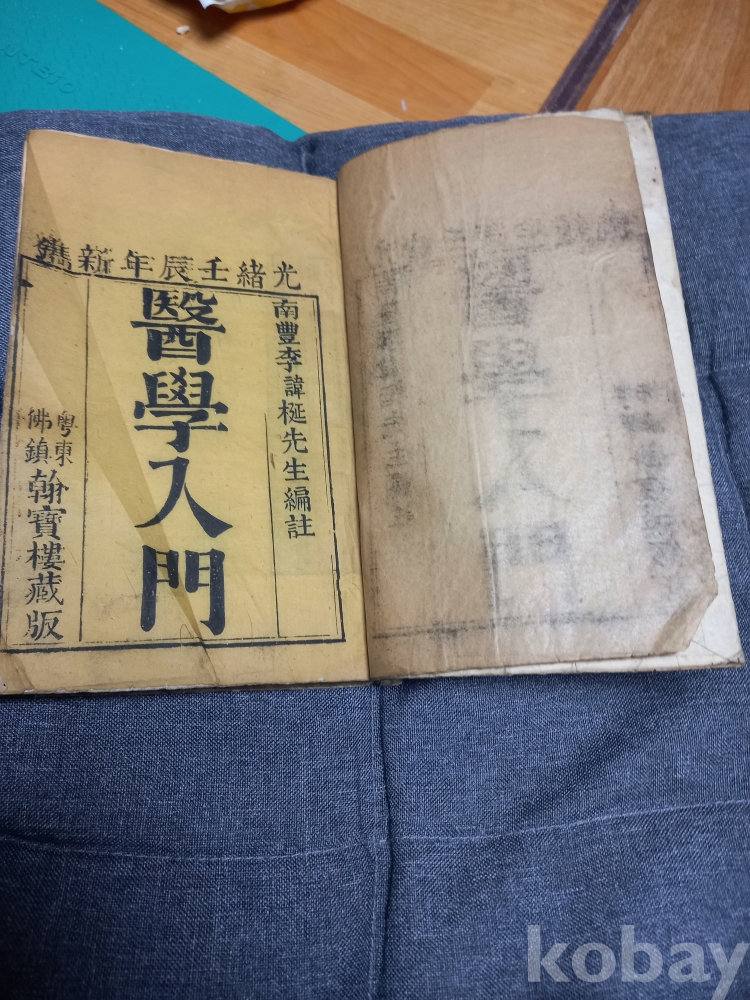 光緒壬辰年新鐫
南豐李諱梴先生編註
醫學入門
粵東
佛鎮
翰寶樓藏版
kobay